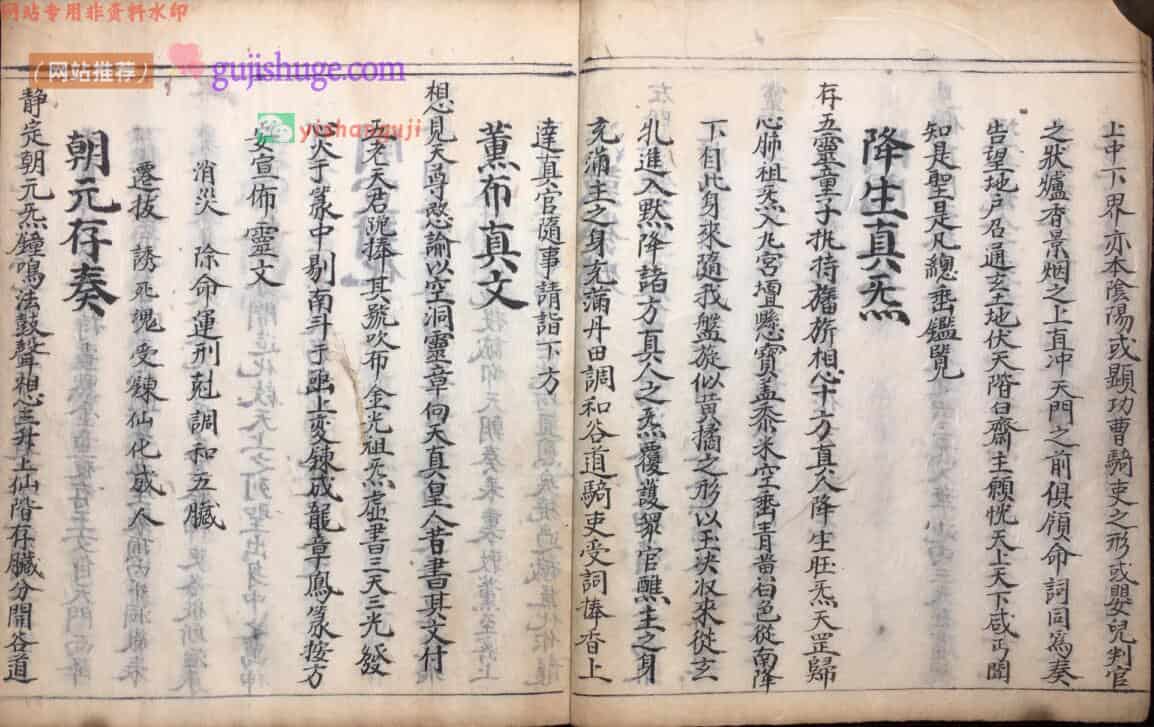 网站专用非资料水印
（网站推荐）
gujishuge.com
yishanguji
上中下界亦本陰陽或顯功曹騎吏之形或嬰兒判官
之狀爐香景烟之上直冲天門之前俱領命詞同為奏
告望地户召通玄土地伏天階白齋主願恍天上天下咸丐聞
知是聖是凡總垂鑑覽
降生真炁
存五靈童子执持旛旂想十方真人降生旺炁天罡歸
心肺祖炁入九宫壇懸寶盖黍米空垂青黄白色從南降
下自此身來隨我盤旋似黄橘之形以玉决収來從玄
牝進入默降諸方真人之炁覆護眾官醮主之身
充滿主之身充滿丹田調和谷道騎吏受詞捧香上
達真官隨事請詣下方
薰布真文
想見天尊慜諭以空洞靈章向天真皇人昔書其文付
五老天君跪捧其號吹布金光祖炁虛書三天三光發
心火于篆中剔南斗于 上变錬成龍章鳳篆按方
安宣佈靈文
消災 除命運刑尅調和五臟
遷拔 誘死魂受錬仙化成人
朝元存奏
静定朝元炁鐘鳴法鼓聲想三升上仙階存臟分開谷道